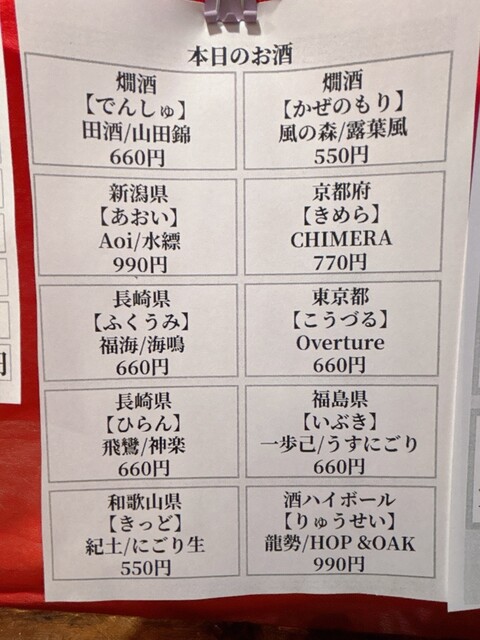 本日のお酒
燗酒
【でんしゅ】
田酒/山田錦
660円
燗酒
【かぜのもり】
風の森/露葉風
550円
新潟県
【あおい】
Aoi/水縹
990円
京都府
【きめら】
CHIMERA
770円
長崎県
【ふくうみ】
福海/海鳴
660円
東京都
【こうづる】
Overture
660円
長崎県
【ひらん】
飛鸞/神楽
660円
福島県
【いぶき】
一歩己/うすにごり
660円
和歌山県
【きっど】
紀土/にごり生
550円
酒ハイボール
【りゅうせい】
龍勢/HOP &OAK
990円
円